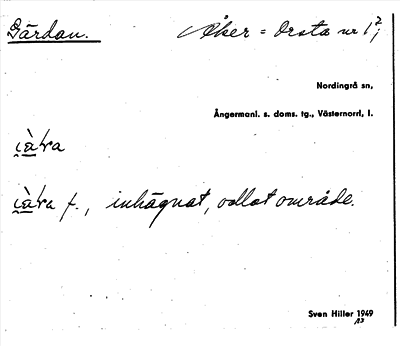 Gärdan. Åker = Orsta nr 1,²
Nordingrå sn,
Ångermanl. s. doms. tg., Västernorrl, l.
f., inhägnat, odlat område.
Sven Hiller 1949